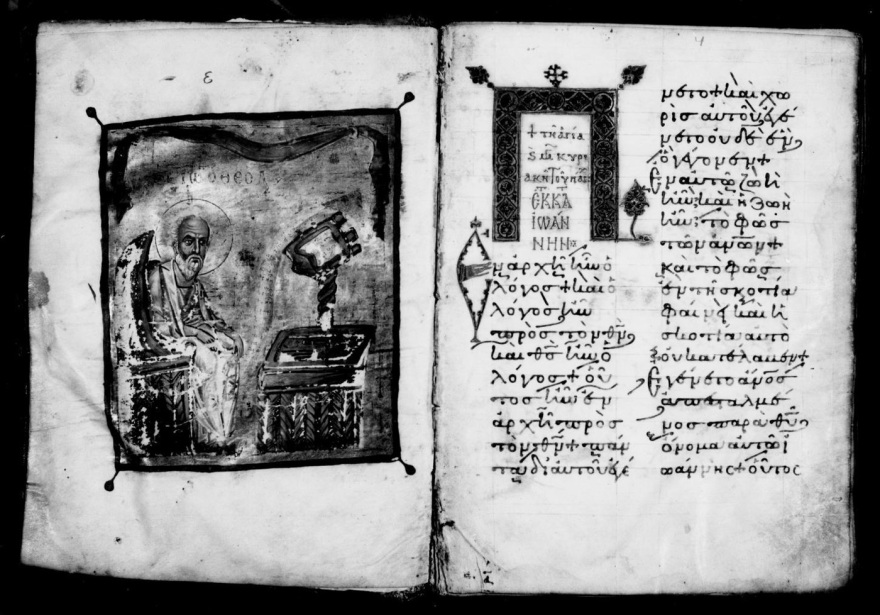 ε
ὁ θεολ
+ τῆ ἁγία
κυρι
ακῆ τοῦ πάσχ
ἐκ κατὰ
ἰωάν
νην
Ἐν ἀρχῆ ἦν ὁ
λόγος + καὶ ὁ
λόγος ἦν
πρὸς τὸν θν
καὶ θς ἦν ὁ
λόγος + οὗ
τος ἦν ἐν
ἀρχῆ πρὸς
τὸν θν + πάν
τα δι αὐτοῦ ἐγέ
νετο + καὶ χω
ρὶς αὐτοῦ ἐγέ
νετο οὐδὲ ἕν
ὃ γέγονεν +
Ἐν αὐτῶ ζωὴ
ἦν καὶ ἡ ζωὴ
ἦν τὸ φῶς
τῶν ἀνων +
καὶ τὸ φῶς
ἐν τῆ σκοτία
φαίνει καὶ ἡ
σκοτία αὐτὸ
οὐ κατέλαβεν +
Ἐγένετο ἀνος
ἀπεσταλμέ
νος παρὰ θυ
ὄνομα αὐτῶ ἰ
ωάννης + οὗτος